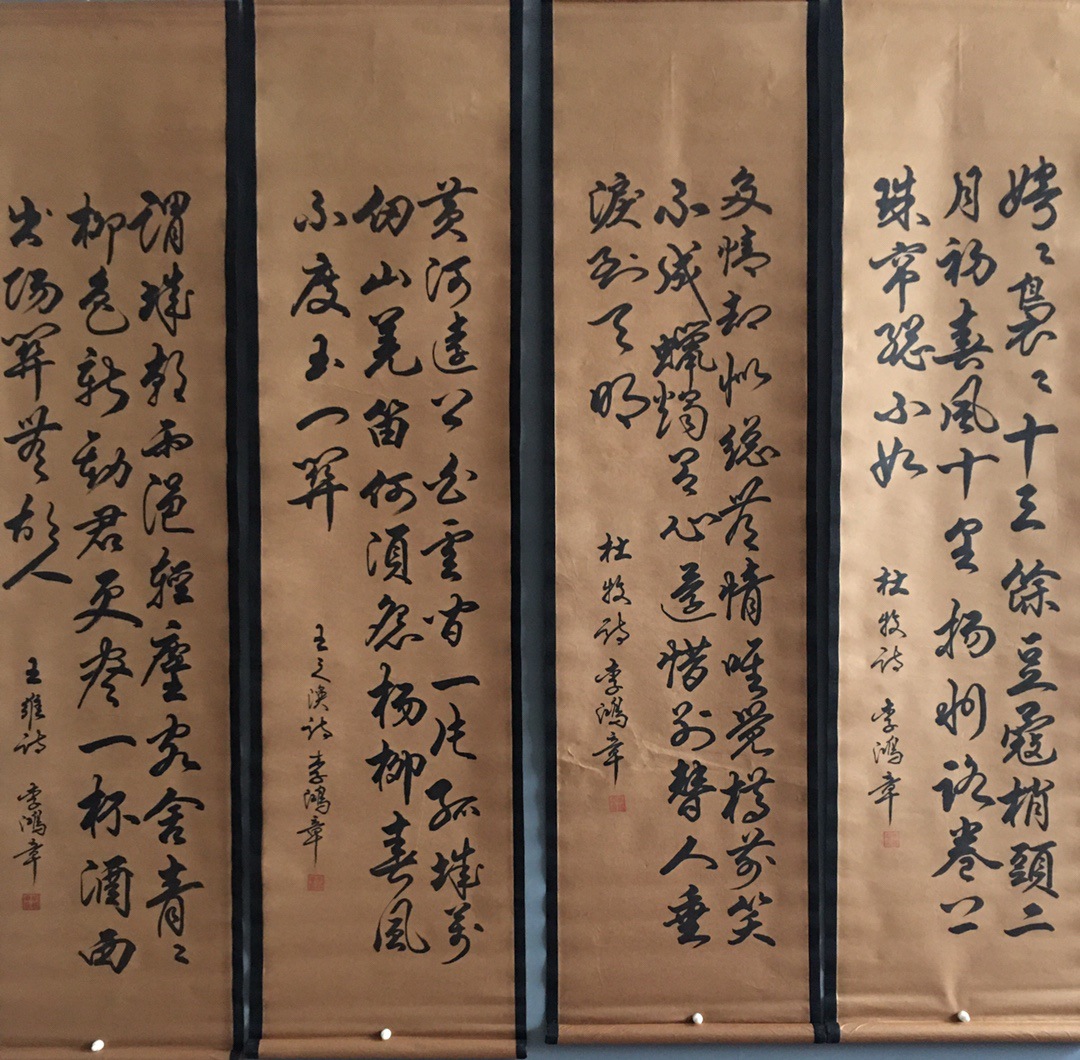 娉〻裊〻十三餘豆蔻梢頭二
月初春風十里揚州路卷上
珠帘總不如
杜牧诗 李鴻章
多情却似總無情唯覺樽前笑
不成蠟燭有心還惜別替人垂
淚到天明
杜牧诗 李鴻章
黃河遠上白雲間一片孤城萬
仞山羌笛何須怨楊柳春風
不度玉門關
王之渙诗 李鴻章
渭城朝雨浥輕塵客舍青〻
柳色新勸君更尽一杯酒西
出陽關無故人
王維诗 李鴻章